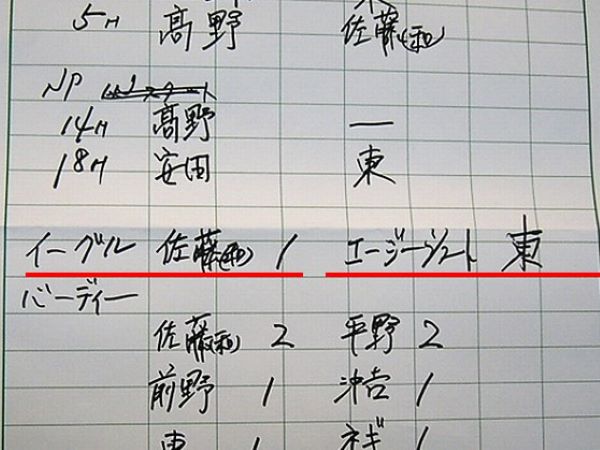 5H 髙野 佐藤(和)
NP
14H 髙野 ー
18H 安田 東
イーグル 佐藤(和) 1 エージーシュート 東
バーディー
佐藤(和) 2 平野 2
前野 1 沖吉 1
東 1 ネギ 1